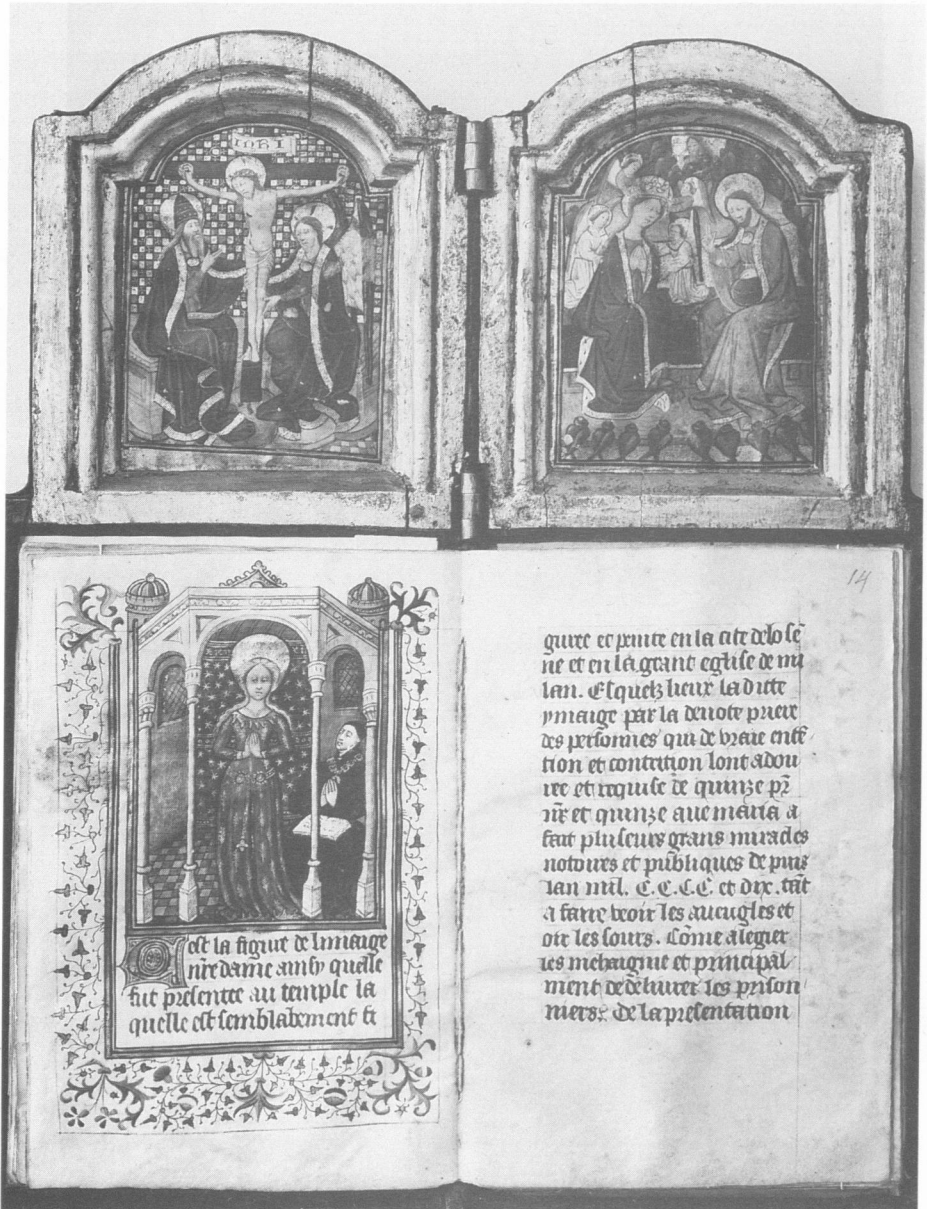 INRI
14
C est la figure de limaige
nr̄e dame ainsy quelle
fut presentee au temple la
quelle est semblablement fi
guree et peinte en la cite de lose
ne et en la grant eglise de mi
lan. Esquelz lieux la ditte
ymaige par la deuote priere
des personnes qui de vraie entē
tion et contrition lont adou
ree et requise de quinze pr̄
nr̄e et quinze aue maria a
fait pluseurs grans miracles
notoires et publiques de puis
lan mil. C.C.C.C et dix. tāt
a faire veoir les aueugles et
oir les sours. Cōme alegier
les mehaignie et principal
ment de deliurer les prison
niers. De la presentation